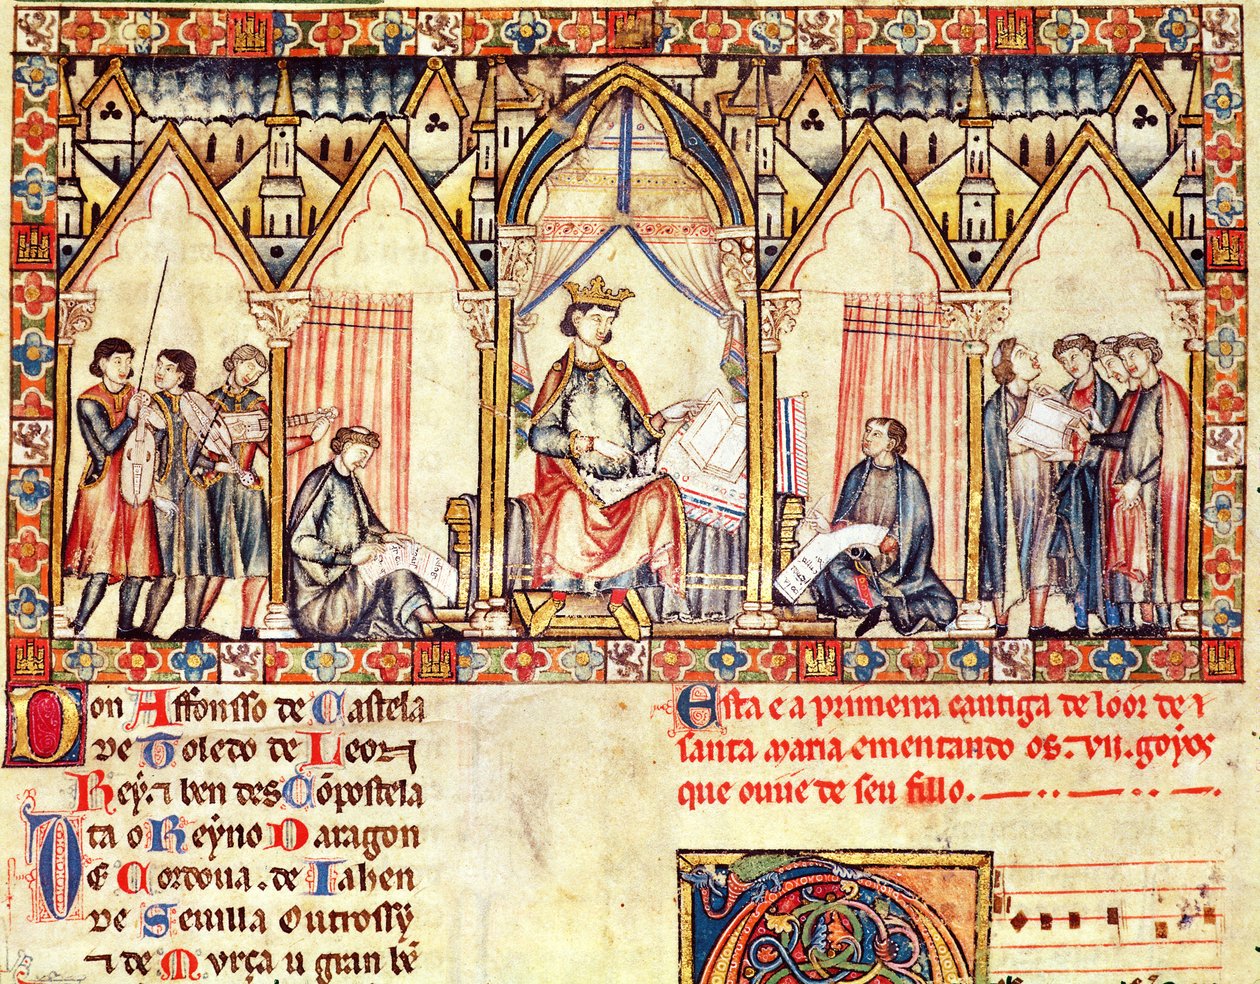 Don Affonsso de Castela
de Toledo de Leon ⁊
Rey ⁊ ben des Cõpostela
ta o Reyno Daragon
De Cordoua . de Iahen
de Seuilla Outrossy
⁊ de Murça u gran bẽ
Esta e a primeira cantiga de loor de
santa Maria ementando os . vii . goyos
que ouue de seu fillo .